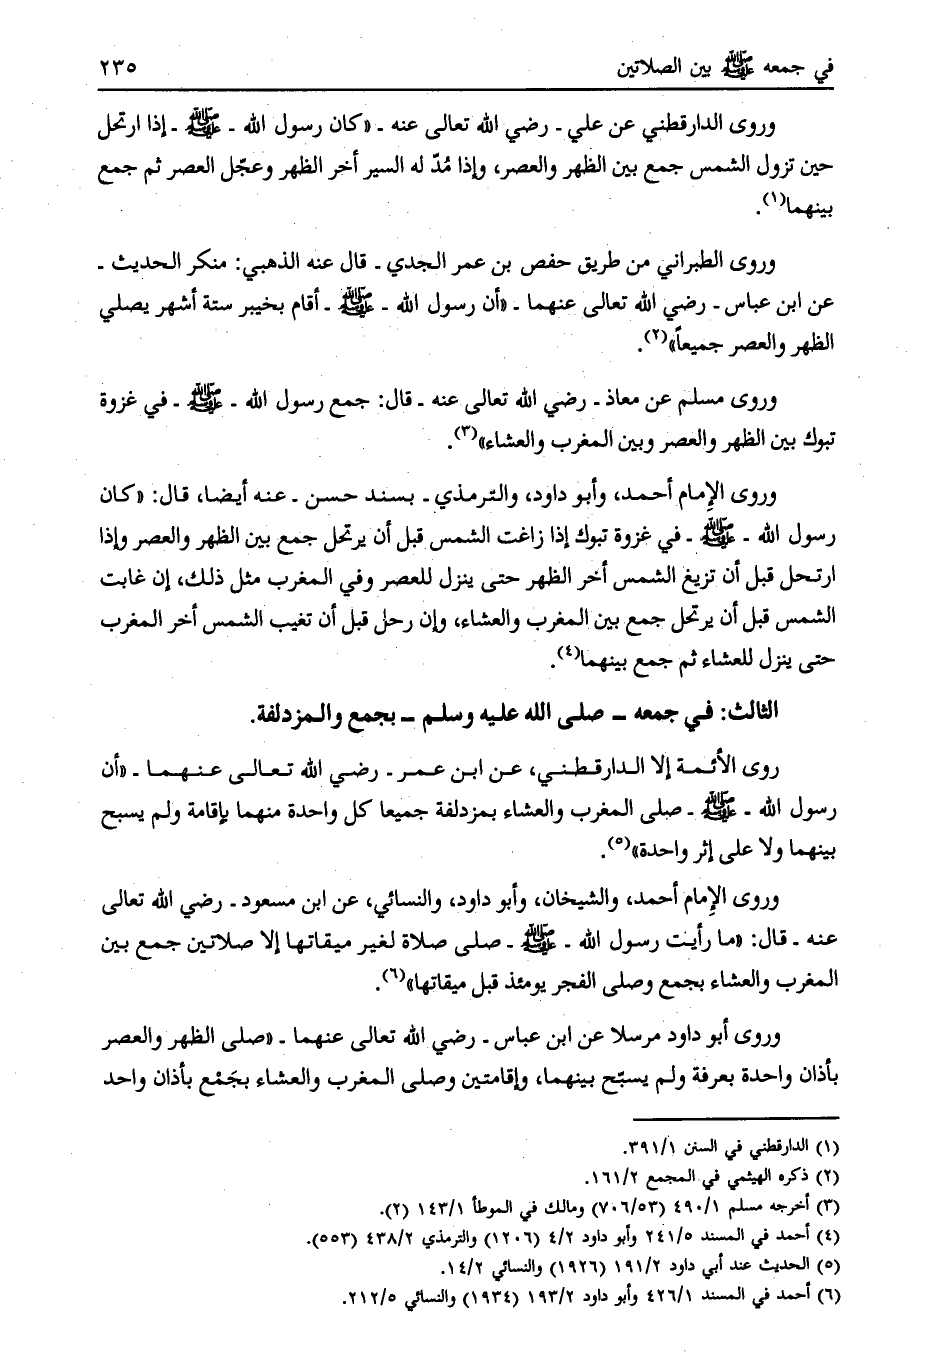 في جمعه ﷺ بين الصلاتين ٢٣٥
وروى الدارقطني عن علي ـ رضي الله تعالى عنه ـ «كان رسول الله ـ ﷺ ـ إذا ارتحل
حين تزول الشمس جمع بين الظهر والعصر، وإذا مُدّ له السير أخر الظهر وعجّل العصر ثم جمع
بينهما(١).
وروى الطبراني من طريق حفص بن عمر الجدي ـ قال عنه الذهبي: منكر الحديث ـ
عن ابن عباس ـ رضي الله تعالى عنهما ـ «أن رسول الله ـ ﷺ ـ أقام بخيبر ستة أشهر يصلي
الظهر والعصر جميعاً»(٢).
وروى مسلم عن معاذ ـ رضي الله تعالى عنه ـ قال: جمع رسول الله ـ ﷺ ـ في غزوة
تبوك بين الظهر والعصر وبين المغرب والعشاء»(٣).
وروى الإمام أحمد، وأبو داود، والترمذي ـ بسند حسن ـ عنه أيضا، قال: «كان
رسول الله ـ ﷺ ـ في غزوة تبوك إذا زاغت الشمس قبل أن يرتحل جمع بين الظهر والعصر وإذا
ارتحل قبل أن تزيغ الشمس أخر الظهر حتى ينزل للعصر وفي المغرب مثل ذلك، إن غابت
الشمس قبل أن يرتحل جمع بين المغرب والعشاء، وإن رحل قبل أن تغيب الشمس أخر المغرب
حتى ينزل للعشاء ثم جمع بينهما(٤).
الثالث: في جمعه ـ صلى الله عليه وسلم ـ بجمع والمزدلفة.
روى الأئمة إلا الدارقطني، عن ابن عمر ـ رضي الله تعالى عنهما ـ «أن
رسول الله ـ ﷺ ـ صلى المغرب والعشاء بمزدلفة جميعا كل واحدة منهما بإقامة ولم يسبح
بينهما ولا على إثر واحدة»(٥).
وروى الإمام أحمد، والشيخان، وأبو داود، والنسائي، عن ابن مسعود ـ رضي الله تعالى
عنه ـ قال: «ما رأيت رسول الله ـ ﷺ ـ صلى صلاة لغير ميقاتها إلا صلاتين جمع بين
المغرب والعشاء بجمع وصلى الفجر يومئذ قبل ميقاتها»(٦).
وروى أبو داود مرسلا عن ابن عباس ـ رضي الله تعالى عنهما ـ «صلى الظهر والعصر
بأذان واحدة بعرفة ولم يسبّح بينهما، وإقامتين وصلى المغرب والعشاء بجَمْع بأذان واحد
(١) الدارقطني في السنن ٣٩١/١.
(٢) ذكره الهيثمي في المجمع ١٦١/٢.
(٣) أخرجه مسلم ٤٩٠/١ (٧٠٦/٥٣) ومالك في الموطأ ١٤٣/١ (٢).
(٤) أحمد في المسند ٢٤١/٥ وأبو داود ٤/٢ (١٢٠٦) والترمذي ٤٣٨/٢ (٥٥٣).
(٥) الحديث عند أبي داود ١٩١/٢ (١٩٢٦) والنسائي ١٤/٢.
(٦) أحمد في المسند ٤٢٦/١ وأبو داود ١٩٣/٢ (١٩٣٤) والنسائي ٢١٢/٥.